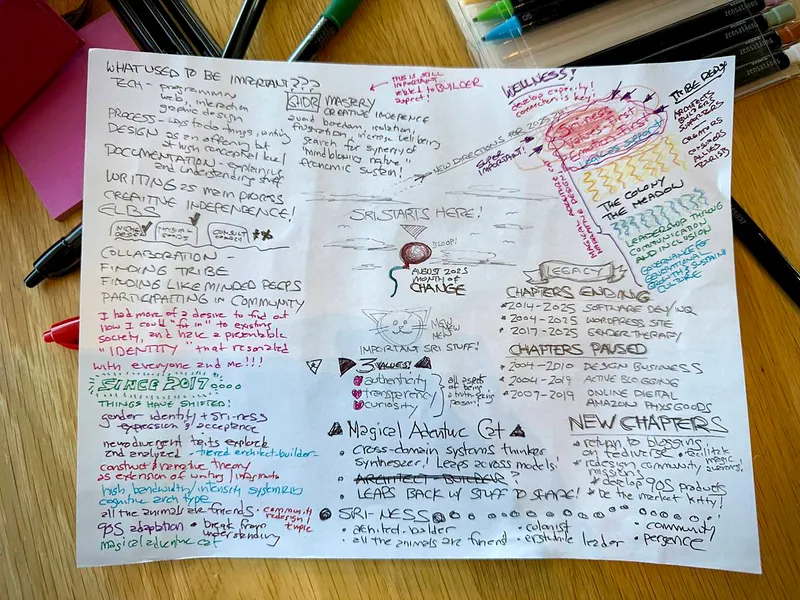 WHAT USED TO BE IMPORTANT???
TECH - programming
web, interaction
graphic design
PROCESS - ways to do things, writing
DESIGN as an offering but
at high conceptual level
DOCUMENTATION - explaining
and understanding stuff
WRITING as main process
CREATIVE INDEPENDENCE!
ELBS
INDIE DESIGN
MAGICAL GOODS
CONSULT COACH
COLLABORATION -
FINDING TRIBE
FINDING LIKE MINDED PEEPS
PARTICIPATING IN COMMUNITY
I had more of a desire to find out
how I could "fit in" to existing
society, and have a presentable
"IDENTITY" that resonated
with everyone and me!!!
SINCE 2017
THINGS HAVE SHIFTED!
gender identity + Sri-ness
expression & acceptance
neurodivergent traits explored
and analyzed - tiered architect-builder
construct narrative theory
as extension of writing/informatio
high bandwidth/intensity systemizing
cognitive archtype
all the animals are friends
community redesign topic
90S adaptation
break from understanding
magical adventure cat
GHDR
MASTERY
CREATIVE INDEPENCE
avoid boredom, isolation,
frustration, increase well being
search for synergy of
mind blowing nature
economic sustain!
THIS IS STILL
IMPORTANT
related to BUILDER
aspect!
NEW DIRECTIONS FOR 2025
SUPER IMPORTANT!
SRI STARTS HERE!
BLOOP!
AUGUST 2025
MONTH OF
CHANGE
MEW
MEW
MEW
IMPORTANT SRI STUFF!
3 VALUES!
authenticity
transparency
curiosity
all aspects
of being
a truth-seeking
person!
Magical Adventure Cat
cross-domain systems thinker
synthesizer! Leaps across models!
ARCHITECT BUILDER?
LEAPS BACK w/ STUFF TO SHARE!
SRI-NESS
architect-builder
all the animals are friend
colonist
erstwhile leader
community
pergence
WELLNESS!
develop capacity!
connection is key!
Sri-ness
Values-First
Emotions-First
TRIBE REDEF
ARCHITECTS
BUILDERS
SUPPORTERS
CREATORS
CONSUMERS
ALLIES
TOURISTS
THE COLONY
THE MEADOW
LEADERSHIP THROUGH
COMMUNICATION
AND INCLUSION
GOVERNANCE FOR
GENERATIONAL
GROWTH & SUSTAIN
CULTURE
LEGACY
CHAPTERS ENDING
2014-2025 SOFTWARE DEV/NQ
2004-2025 WORDPRESS SITE
2017-2025 GENDER THERAPY
CHAPTERS PAUSED
2004-2010 DESIGN BUSINESS
2004-2019 ACTIVE BLOGGING
2007-2019 ONLINE DIGITAL
AMAZON PHYS GOODS
NEW CHAPTERS
return to blogging
on fediverse
facilitate magic
redesign community
missions
develop 90S products
be the market kitty!
zensations
zensations